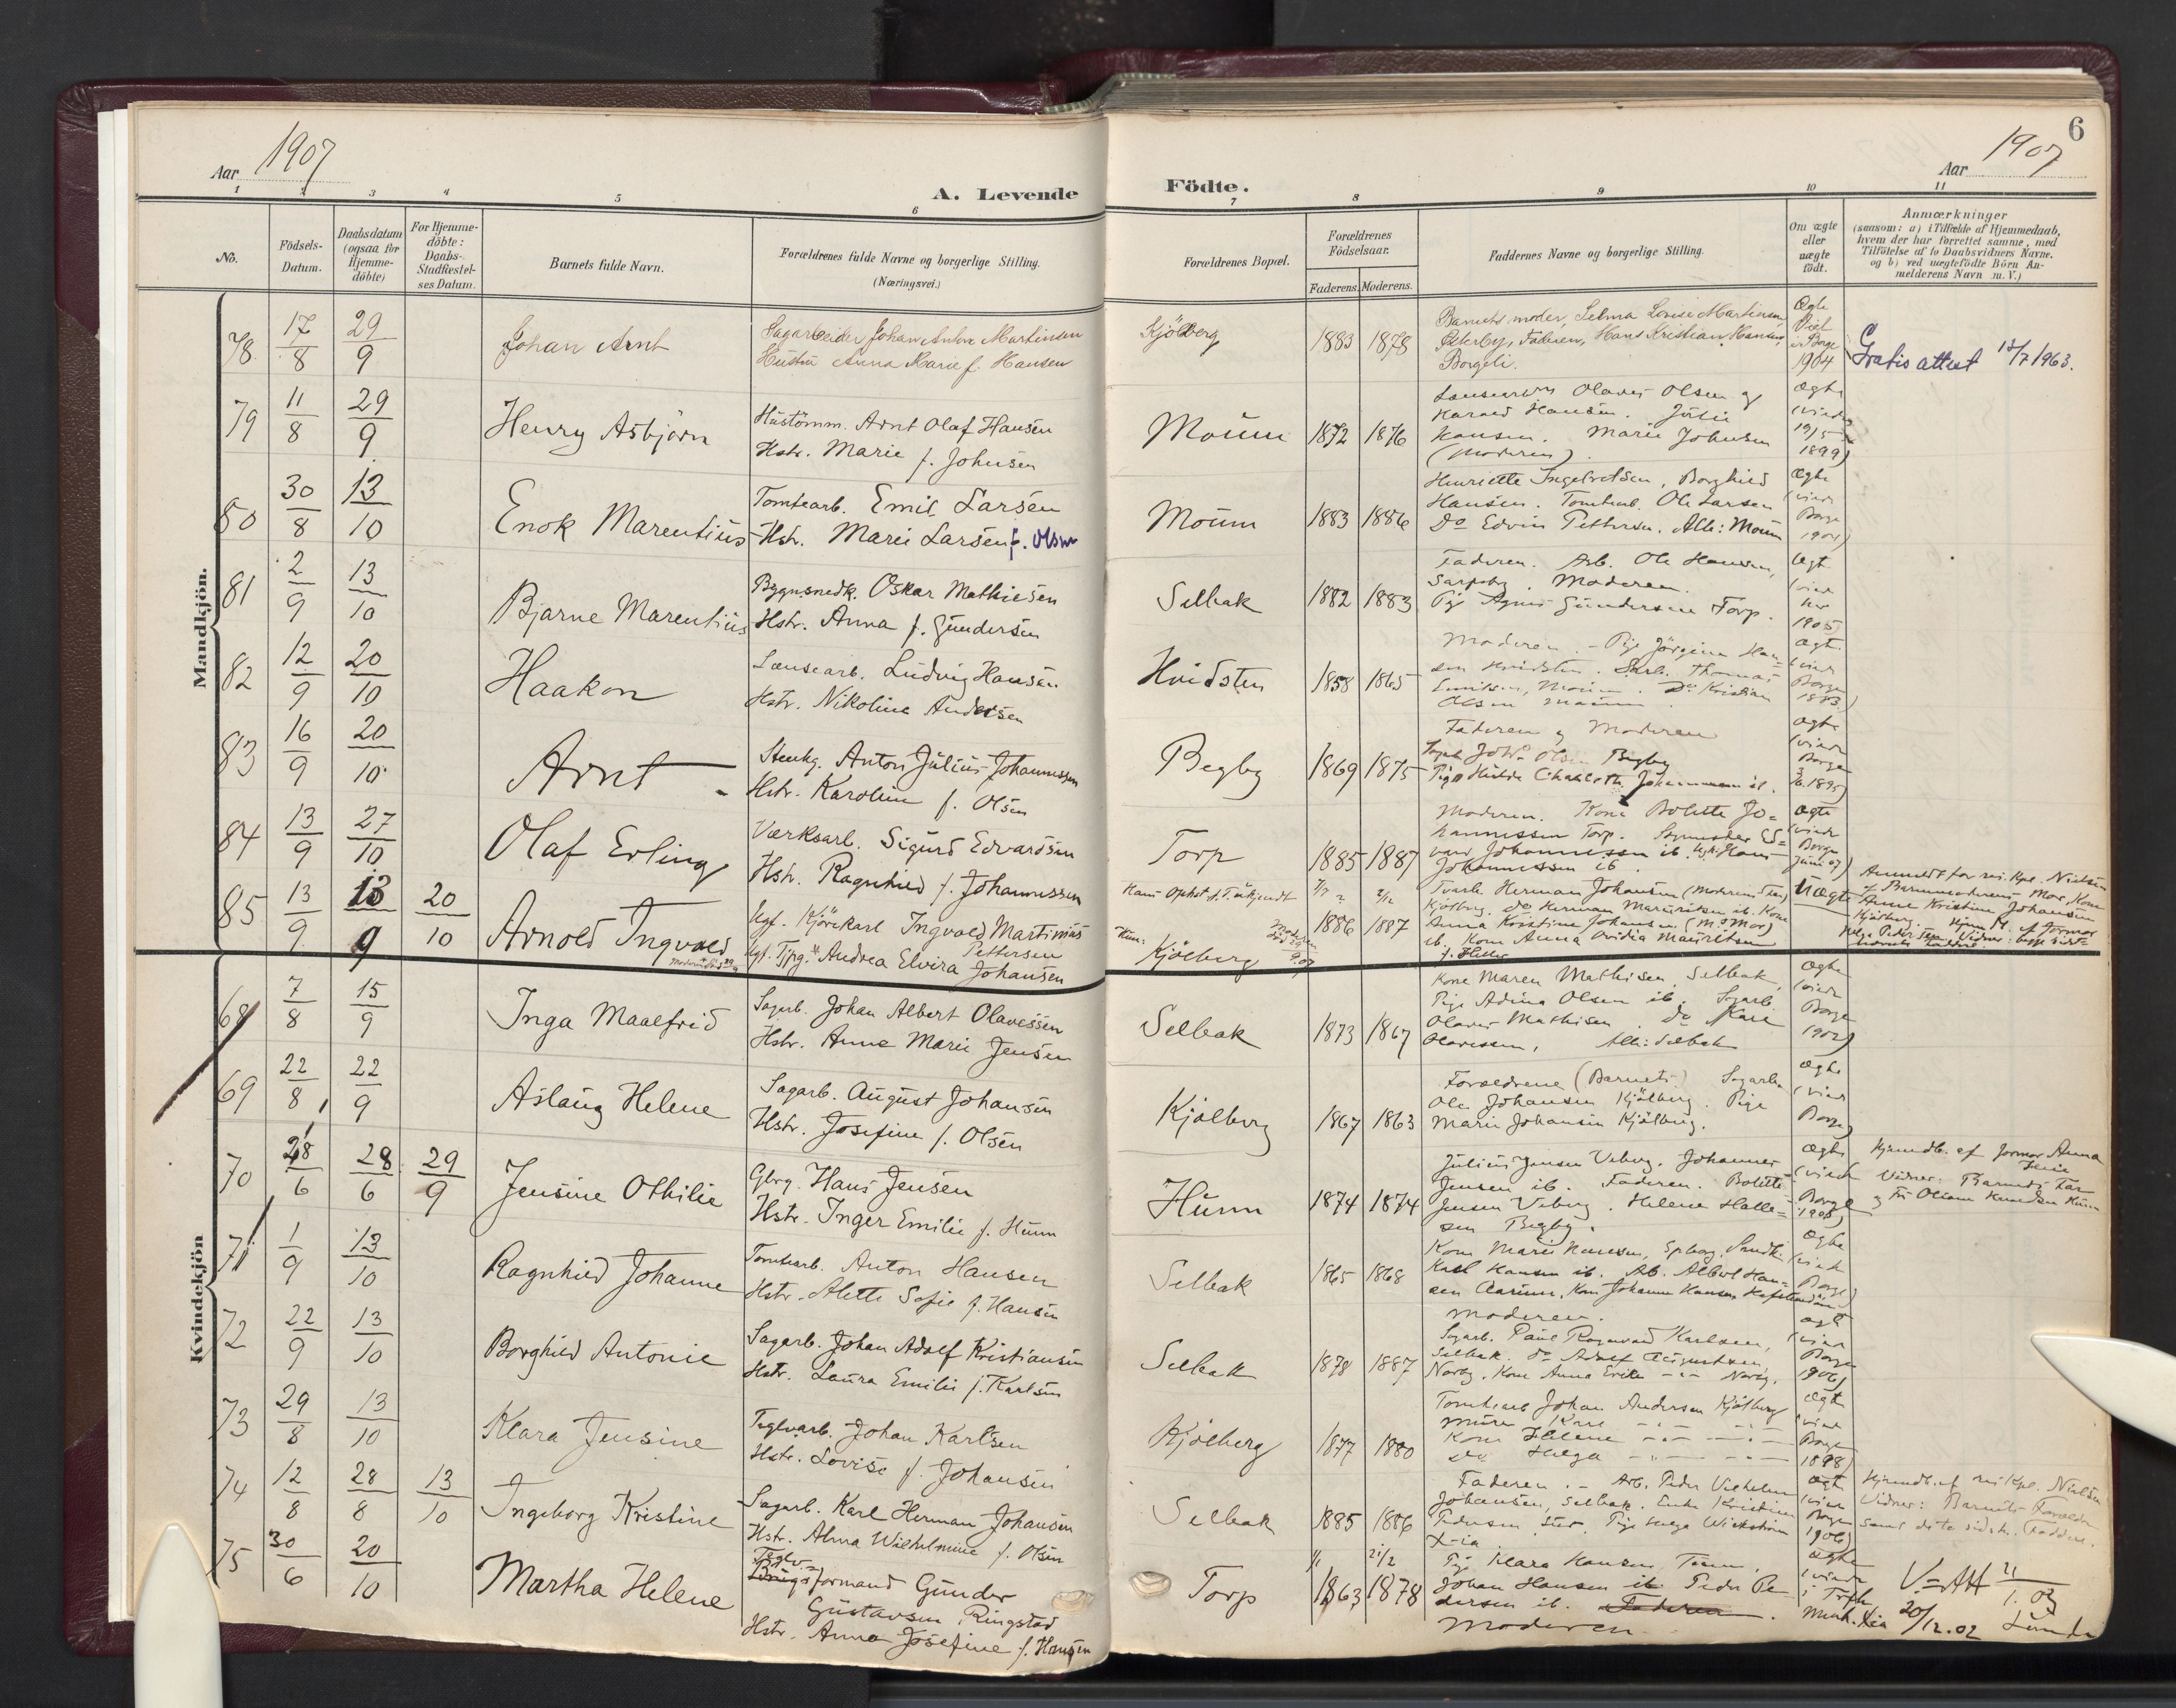 Aar 1907
A. Levende
Födte.
6
Aar 1907
1 2 3 4 5 6 7 8 9 10 11
No.
Födsels-
Datum.
Daabsdatum
(ogsaa for
Hjemme-
döbte)
For Hjemme-
döbte:
Daabs-
Stadfæstel-
ses Datum.
Barnets fulde Navn.
Forældrenes fulde Navne og borgerlige Stilling.
(Næringsvei.)
Forældrenes Bopæl.
Forældrenes
Födselsaar.
Faderens. Moderens.
Faddernes Navne og borgerlige Stilling.
Om ægte
eller
uægte
født.
Anmærkninger
(saasom: a) i Tilfælde af Hjemmedaab,
hvem der har forrettet samme, med
Tilføielse af to Daabsvidners Navne.
og b) ved uægtefödte Börn An-
melderens Navn m. V.)
Mandkjön.
78 17/8 29/9 Johan Arnt
Sagarbeider Johan Anton Martinsen
Hustru Anna Marie f. Hansen
Kjölberg 1883 1878
Barnets moder, Selma Lovise Martinsen
Østerby, Faderen, Hans Kristian Hansen,
Borgeli.
Ægte
Viet
i Borge
1904
Gratis attest 12/7 1963.
79 11/8 29/9 Henry Asbjørn
Hustömm. Arnt Olaf Hansen
Hstr. Marie f. Johnsen
Moum 1872 1876
Olaves Olsen og
Harald Hansen. Julie
Hansen. Marie Johnsen
(Moderen).
Ægte
1899)
80 30/8 13/10 Enok Marentius
Tomtearb. Emil Larsen
Hstr. Marie Larsen f. Olsen
Moum 1883 1886
Henriette Ingebretsen, Borghild
Hansen. Tomtearb. Ole Larsen
Do Edvin Pettersen. Alle: Moum
Ægte
(viede
Borge
81 2/9 13/10 Bjarne Marentius
Bygnsnedk. Oskar Mathiesen
Hstr. Anna f. Gundersen
Selbak 1882 1883
Faderen. Arb. Ole Hansen,
Sarpsborg. Moderen.
Pige Agnes Gundersen Torp.
Ægte
1905)
82 12/9 20/10 Haakon
Lænsearb. Ludvig Hansen
Hstr. Nikoline Andersen
Hvidsten 1858 1865
Moderen. - Pige Jörgine Han-
sen Hvidsten. Thomas
Moum. Do Kristian
Olsen Moum.
Ægte
(viede
Borge
1883)
83 16/9 20/10 Arnt
Stenhg. Anton Julius Johannessen
Hstr. Karoline f. Olsen
Begby 1869 1875
Faderen og Moderen
Olsen Begby
Pige Hulda Charlotte Johannessen ib.
Ægte
(viede
Borge
1895)
84 13/9 27/10 Olaf Erling
Værksarb. Sigurd Edvardsen
Hstr. Ragnhild f. Johannessen
Torp 1885 1887
Moderen. Kone Bolette Jo-
hannessen Torp. Ed-
vard Johannessen ib. Hans
Johannessen ib.
Ægte
(viede
Borge
Juni 07)
85 13/9 13/9 20/10 Arnold Ingvald
Ugf. Kjörekarl Ingvald Martinius
Pettersen
Ugf. Tjpg. Andrea Elvira Johansen
Hans Ophst. f. T. ubekjendt
Hun: Kjölberg
Moderen
död 29/9.07
1886 1887
Tvarb. Herman Johansen (Moderens Far)
Kjölberg. Do Herman Mauritsen ib. Kone
Anna Kristine Johansen (M's Mor)
ib. Kone Anna Ovidia Mauritsen
Uægte
Anmeldt for res. Kpl. Nielsen
af Barnemoderens Mor, Kone
Anne Kristine Johansen
Kjölberg.
Kvindekjön
68 7/8 15/9 Inga Maalfrid
Sagarb. Johan Albert Olavessen
Hstr. Anne Marie Jensen
Selbak 1873 1867
Kone Maren Mathisen, Selbak,
Pige Adina Olsen ib. Sagarb.
Olaves Mathisen. Do Karl
Olavessen, Alle: Selbak
Ægte
(viede
Borge
1902)
69 22/8 22/9 Aslaug Helene
Sagarb. August Johansen
Hstr. Josefine f. Olsen
Kjölberg 1867 1863
Forældrene (Barnets) Sagarb.
Ole Johansen Kjölberg. Pige
Marie Johansen Kjölberg.
Ægte
(viede
Borge)
70 28/6 28/6 29/9 Jensine Othilie
Gbrg. Hans Jensen
Hstr. Inger Emilie f. Hunn
Hunn 1874 1874
Julius Jensen Veberg. Johannes
Jensen ib. Faderen. Bolette
Jensen Veberg. Helene Halle-
sen Begby.
Ægte
(viede
Borge
Hjemdb. af Jormor Anna
Vidner: Barnets Far
71 1/9 13/10 Ragnhild Johanne
Tomtearb. Anton Hansen
Hstr. Alette Sofie f. Hansen
Selbak 1865 1868
Kone Marie Hansen,
Karl Hansen ib. Arb. Albert Han-
sen Aarum, Kone Johanne Hansen
Moderen.
Ægte
(viede
Borge)
72 22/9 13/10 Borghild Antonie
Sagarb. Johan Adolf Kristiansen
Hstr. Laura Emilie f. Karlsen
Selbak 1878 1887
Sagarb. Paul Ragnvald Karlsen,
Selbak. do Adolf Augustsen,
Norby. Kone Anna Norby.
Ægte
(viede
Borge
1906)
73 29/8 13/10 Klara Jensine
Teglvarb. Johan Karlsen
Hstr. Lovise f. Johansen
Kjölberg 1877 1880
Tomtearb Johan Andersen Kjölberg
Murer Karl -"- -"-
Kone Helene -"- -"-
Helga -"- -"-
Ægte
(viede
Borge
1898)
74 12/8 28/8 13/10 Ingeborg Kristine
Sagarb. Karl Herman Johansen
Hstr. Alma Wilhelmine f. Olsen
Selbak 1885 1886
Faderen. - Arb. Peder Vilhelm
Johansen, Selbak. Enke Kristine
Pedersen Pige Helga
X-ia
Ægte
(viede
Borge
1906)
Hjemdb. af res. Kpl. Nielsen
Vidner: Barnets Forældre
samt de to sidste Faddere.
75 30/6 20/10 Martha Helene
Teglv-
Brugsformand Gunder
Gustavsen Ringstad
Hstr. Anna Josefine f. Hansen
Torp 1863 1878
Pige Klara Hansen, Torp.
Johan Hansen ib. Peder Pe-
dersen ib. Faderen.
Moderen
Ægte
(viede
i Trefh.
Menh. Xia
20/12.02
V=Att 21/1.03